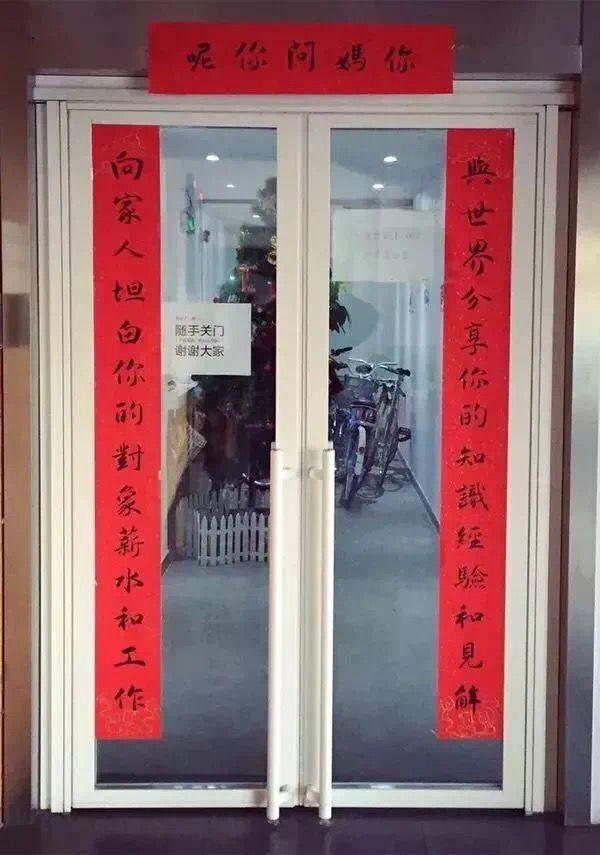 你媽问你呢
與世界分享你的知識經驗和見解
向家人坦白你的對象薪水和工作
随手关门
谢谢大家